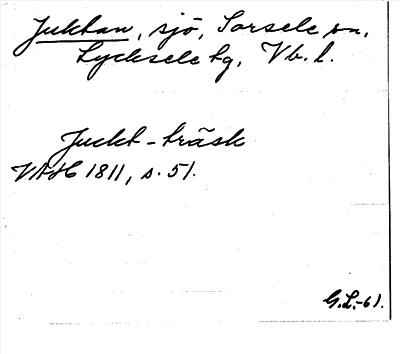 Juktan, sjö, Sorsele sn,
Lycksele tg, Vb. l.
Juckt-träsk
VAH 1811, s. 51.
G.L.-61.